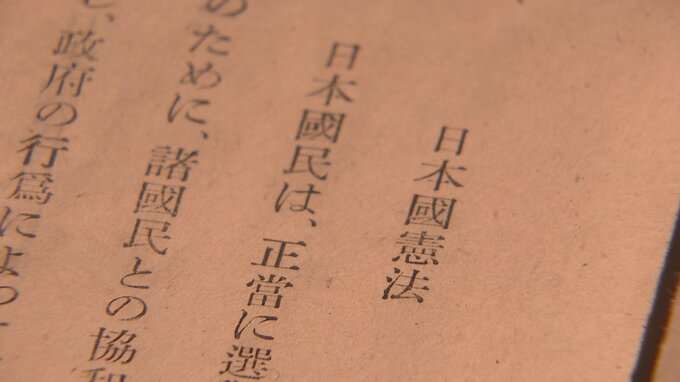 日本國憲法
日本國民は、正當に選
のために、諸國民との協和
し、政府の行爲によつて